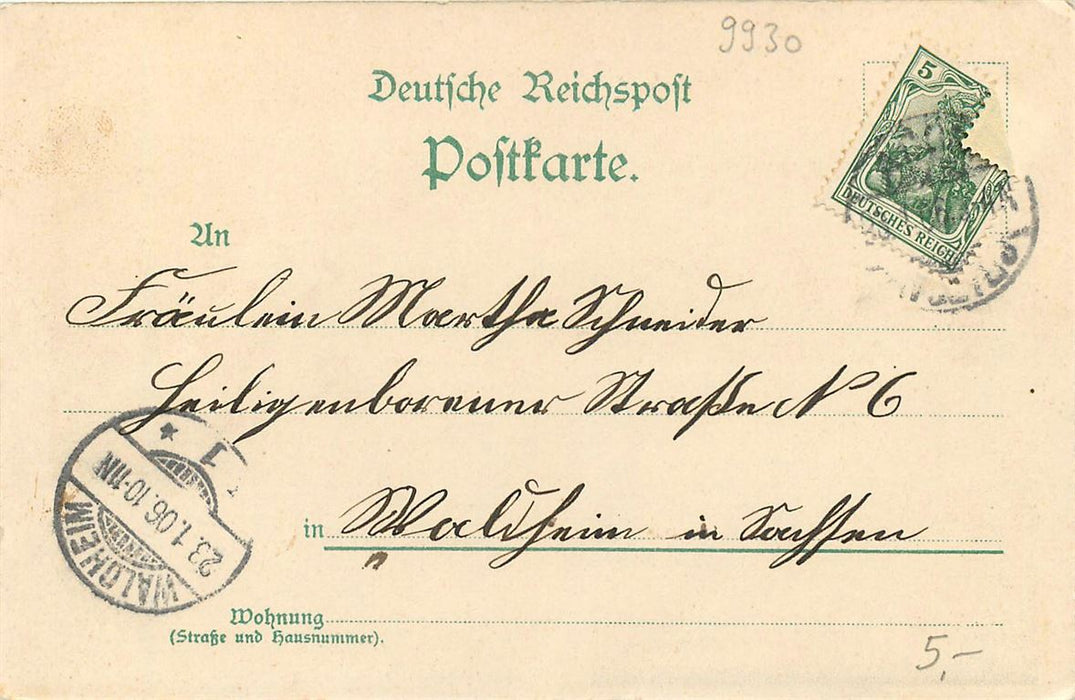 9930
Deutsche Reichspost
Postkarte.
5
DEUTSCHES REICH
An
Fräulein Martha Schneider
Heiligenborener Straße N 6
in Waldheim in Sachsen
WALDHEIM
23.1.06.10-11N
Wohnung
(Straße und Hausnummer).
5,-